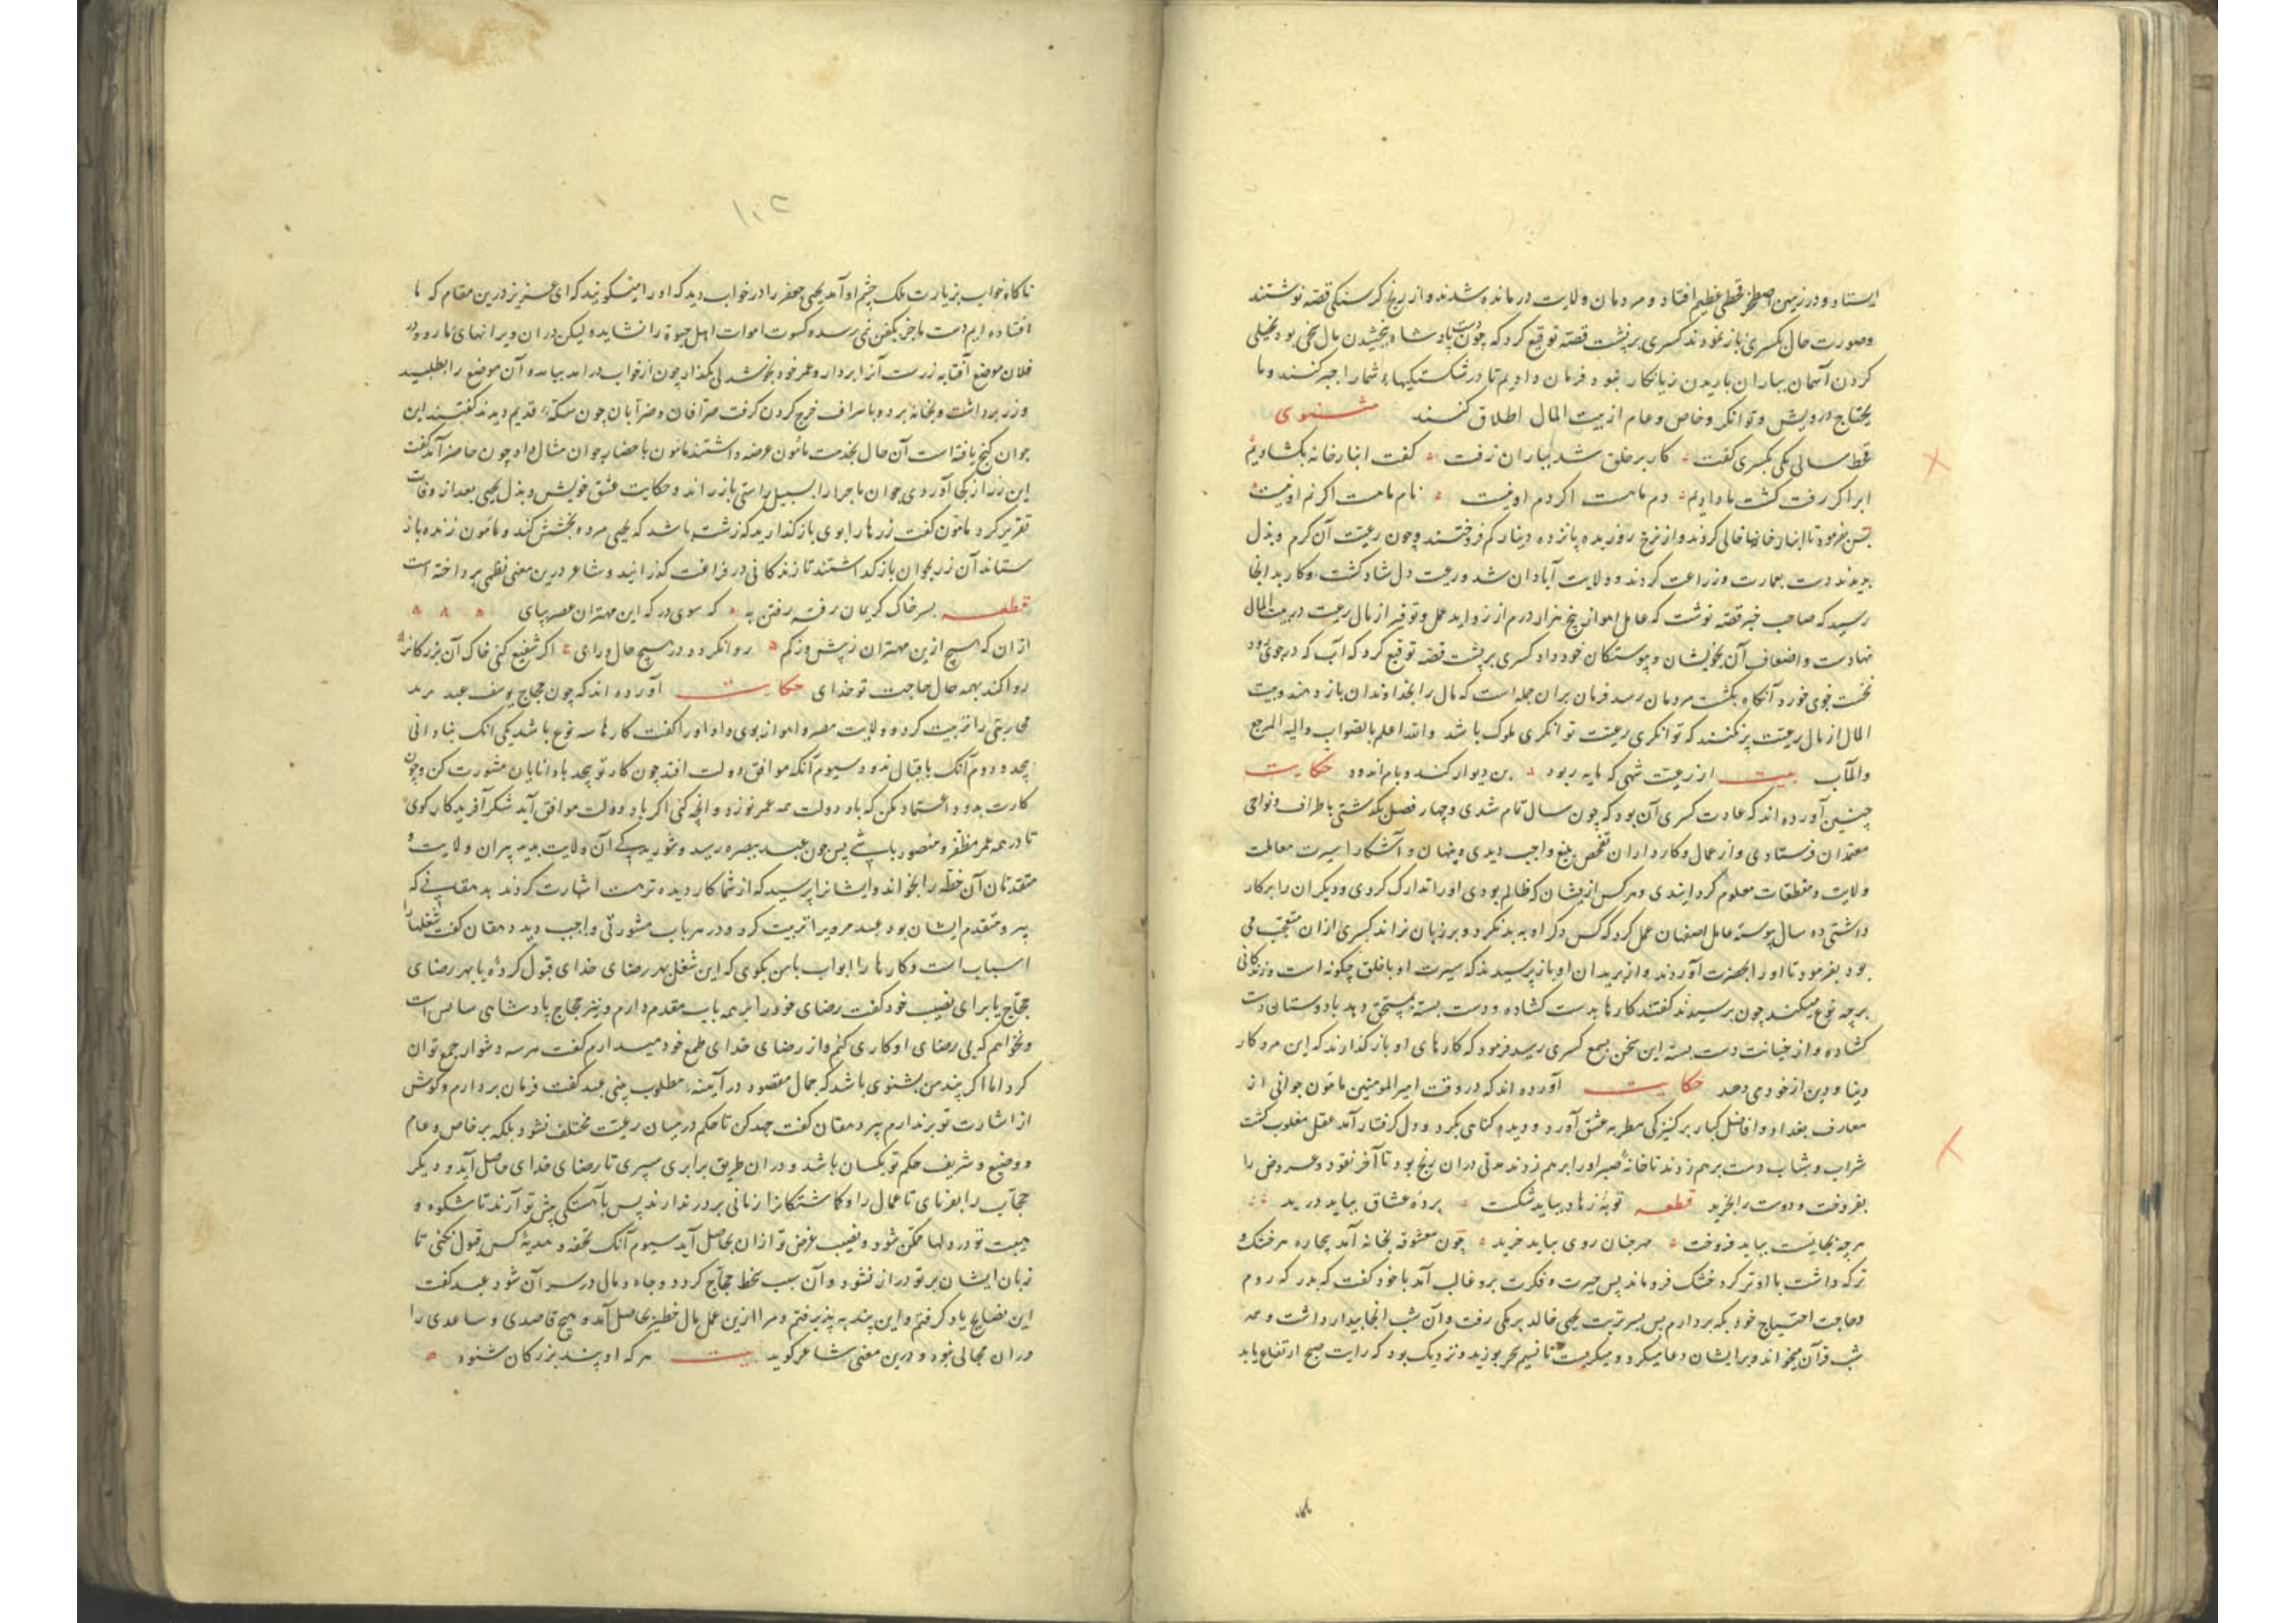 ایستاد و در زمین اصطخر قحطی عظیم افتاد و مردمان ولایت درمانده شدند و از رنج گرسنگی قصه نوشتند
و صورت حال بکسری باز نمودند کسری بر پشت قصه توقیع کرد که چون پادشاه ببخشیدن مال سخی بود بخیلی
کردن آسمان بباران باریدن زیانکار نبود فرمان دادیم تا در شکستیکیهاء شما را جبر کنند و ما
یحتاج درویش و توانکر و خاص و عام از بیت المال اطلاق کنند مثنوی
قحط سالی یکی بکسری گفت کار بر خلق شد بباران زفت گفت انبارخانه بکشاویم
ابر اگر رفت کشت ما دادیم دم ما هست اگر دم او نیست نام ما هست اگر نم او نیست
پس بفرمود تا انبار خانها خالی کردند و از نرخ روز بده پانزده دینار کم فروختند و چون رعیت آن کرم و بذل
بدیدند دست بعمارت و زراعت کردند و ولایت آبادان شد و رعیت دل شاد گشت و کار بدانجا
رسید که صاحب خبر قصه نوشت که عامل اهواز پنج هزار درم از زواید عمل و توفیر از مال رعیت در بیت المال
نهادست و اضعاف آن بخویشان و پیوستکان خود داد کسری بر پشت قصه توقیع کرد که آب که در جوی رود
نخست جوی خورد آنگاه بکشت مردمان رسد فرمان بران جمله است که مال را بخداوندان باز دهند و بیت
المال از مال رعیت پر نکنند که توانکری رعیت توانکری ملوک باشد والله اعلم بالصواب والیه المرجع
والمآب بیت از رعیت شهی که مایه ربود بن دیوار کند و بام اندود حکایت
چنین آورده اند که عادت کسری آن بود که چون سال تمام شدی و چهار فصل بگذشتی باطراف و نواحی
معتمدان فرستادی و از عمال و کارداران تفحص بلیغ واجب دیدی و پنهان و آشکارا سیرت معاملت
ولایت و مقطعات معلوم گردانیدی و هر کس ازیشان که ظالم بودی او را تدارک کردی و دیگران را بر کار
داشتی ده سال پیوسته عامل اصفهان عمل کرد که کس ذکر او به بد نکرد و بر زبان نراند کسری ازان متعجب می
بود بفرمود تا او را بحضرت آوردند و از بریدان او باز پرسیدند که سیرت او با خلق چگونه است و زندگانی
بر چه نوع میکند چون پرسیدند گفتند کارها بدست گشاده و دست بسته بمستحق دهد با دوستان دست
گشاده و از خیانت دست بسته این سخن بسمع کسری رسید فرمود که کارهای او باز گذارند که این مرد کار
دنیا و دین از خودی دهد حکایت آورده اند که در وقت امیرالمومنین مامون جوانی از
معارف بغداد و افاضل کبار بر کنیزکی مطربه عشق آورد و دیده گناهی بکرد و دل گرفتار آمد عقل مغلوب گشت
شراب و شاب دست بر هم زدند تا خانه صبر او را بر هم زدند مدتی دران رنج بود تا آخر نقود و عروض را
بفروخت و دوست را بخرید قطعه توبه زهاد بباید شکست پرده عشاق بباید درید
هر چه بجایست بباید فروخت مهر چنان روی بباید خرید چون معشوقه بخانه آمد بیچاره هر خشک و
تر که داشت با او تر کرد خشک فرو ماند پس حیرت و فکرت برو غالب آمد با خود گفت که بدر که روم
و حاجت احتیاج خود بکه بردارم پس بسر تربت یحیی خالد برمکی رفت و آن شب آنجا بیدار داشت و همه
شب قرآن میخواند و بر ایشان دعا میکرد و میگریست تا نسیم سحر بوزید و نزدیک بود که رایت صبح ارتفاع یابد
۱۰۲
ناگاه خواب بزیارت ملک چشم او آمد یحیی جعفر را در خواب دید که او را میگویند که ای عزیز درین مقام که ما
افتاده ایم دست ما جز بکفن نمی رسد و کسوت اموات اهل حیوة را نشاید ولیکن دران ویرانهای ما رو و در
فلان موضع آفتابه زرست آنرا بردار و عمر خود بخوشدلی بگذار چون از خواب درآمد بیامد و آن موضع را بطلبید
و زر برداشت و بخانه برد و باسراف خرج کردن گرفت صرافان و ضرابان چون سکه قدیم دیدند گفتند این
جوان گنج یافته است آن حال بخدمت مامون عرضه داشتند مامون باحضار جوان مثال داد چون حاضر آمد گفت
این زر از کجا آوردی جوان ماجرا را بسبیل راستی باز راند و حکایت عشق خویش و بذل یحیی بعد از وفات
تقریر کرد مامون گفت زرها را بوی باز گذارید که زشت باشد که یحیی مرده بخشش کند و مامون زنده باز
ستاند آن زر بجوان باز گذاشتند تا زندگانی در فراغت گذرانید و شاعر درین معنی نظمی پرداخته است
قطعه بسر خاک کریمان رفته رفتن به که سوی درگه این مهتران عصر بپای
ازان که هیچ ازین مهتران ز بیش و ز کم روا نگردد در هیچ حال و رای اگر شفیع کنی خاک آن بزرگانرا
روا کند بهمه حال حاجت تو خدای حکایت آورده اند که چون حجاج یوسف عبد مرید
محاربتی را تربیت کرد و ولایت مصر و اهواز بوی داد او را گفت کارها سه نوع باشد یکی آنک بنادانی
بیجد و دوم آنک باقبال ندود سیوم آنکه موافق دولت افتد چون کار تو بیجد با دانایان مشورت کن و چون
کارت بدود اعتماد مکن که باد دولت همه عمر نوزد و آنچه کنی اگر باد دولت موافق آید شکر آفریدگار گوی
تا در همه عمر مظفر و منصور باشی پس چون عبد ببصره رسید و شورید کی آن ولایت بدید پیران ولایت و
متقدمان آن خطه را بخواند و ایشانرا پرسید که از شما کاردیده تر کیست اشارت کردند بدهقانی که
پیر و متقدم ایشان بود عبد مرویرا تربیت کرد و در هر باب مشورتی واجب دید دهقان گفت شغلها را
اسباب است و کارها را ابواب با من بگوی که این شغل بهر رضای خدای قبول کرده یا بهر رضای
حجاج یا برای نصیب خود گفت رضای خود را بر همه باب مقدم دارم و نیز حجاج پادشاهی سائس است
و نخواهم که بی رضای او کاری کنم و از رضای خدای طمع خود میدارم گفت هر سه دشوار جمع توان
کرد اما اگر پند من بشنوی باشد که جمال مقصود در آینه مطلوب بینی عبد گفت فرمان بردارم و گوش
از اشارت تو بر ندارم پیر دهقان گفت جهد کن تا حکم در میان رعیت مختلف نشود بلکه بر خاص و عام
و وضیع و شریف حکم تو یکسان باشد و دران طریق برابری سپری تا رضای خدای حاصل آید و دیگر
حجاب را بفرمای تا عمال را و گماشتگانرا زمانی بر در ندارند پس باهستگی پیش تو آرند تا شکوه و
هیبت تو در دلها متمکن شود و نصیب غرض تو ازان بحاصل آید سیوم آنک تحفه و هدیه کس قبول نکنی تا
زبان ایشان بر تو دراز نشود و آن سبب سخط حجاج گردد و جاه و مال در سر آن شود عبد گفت
این نصایح یاد گرفتم و این پند پیر پذیرفتم و مرا ازین عمل مال خطیر بحاصل آمد و هیچ قاصدی و ساعدی را
دران مجالی نبود و درین معنی شاعر گوید بیت هر که او پند بزرگان شنود